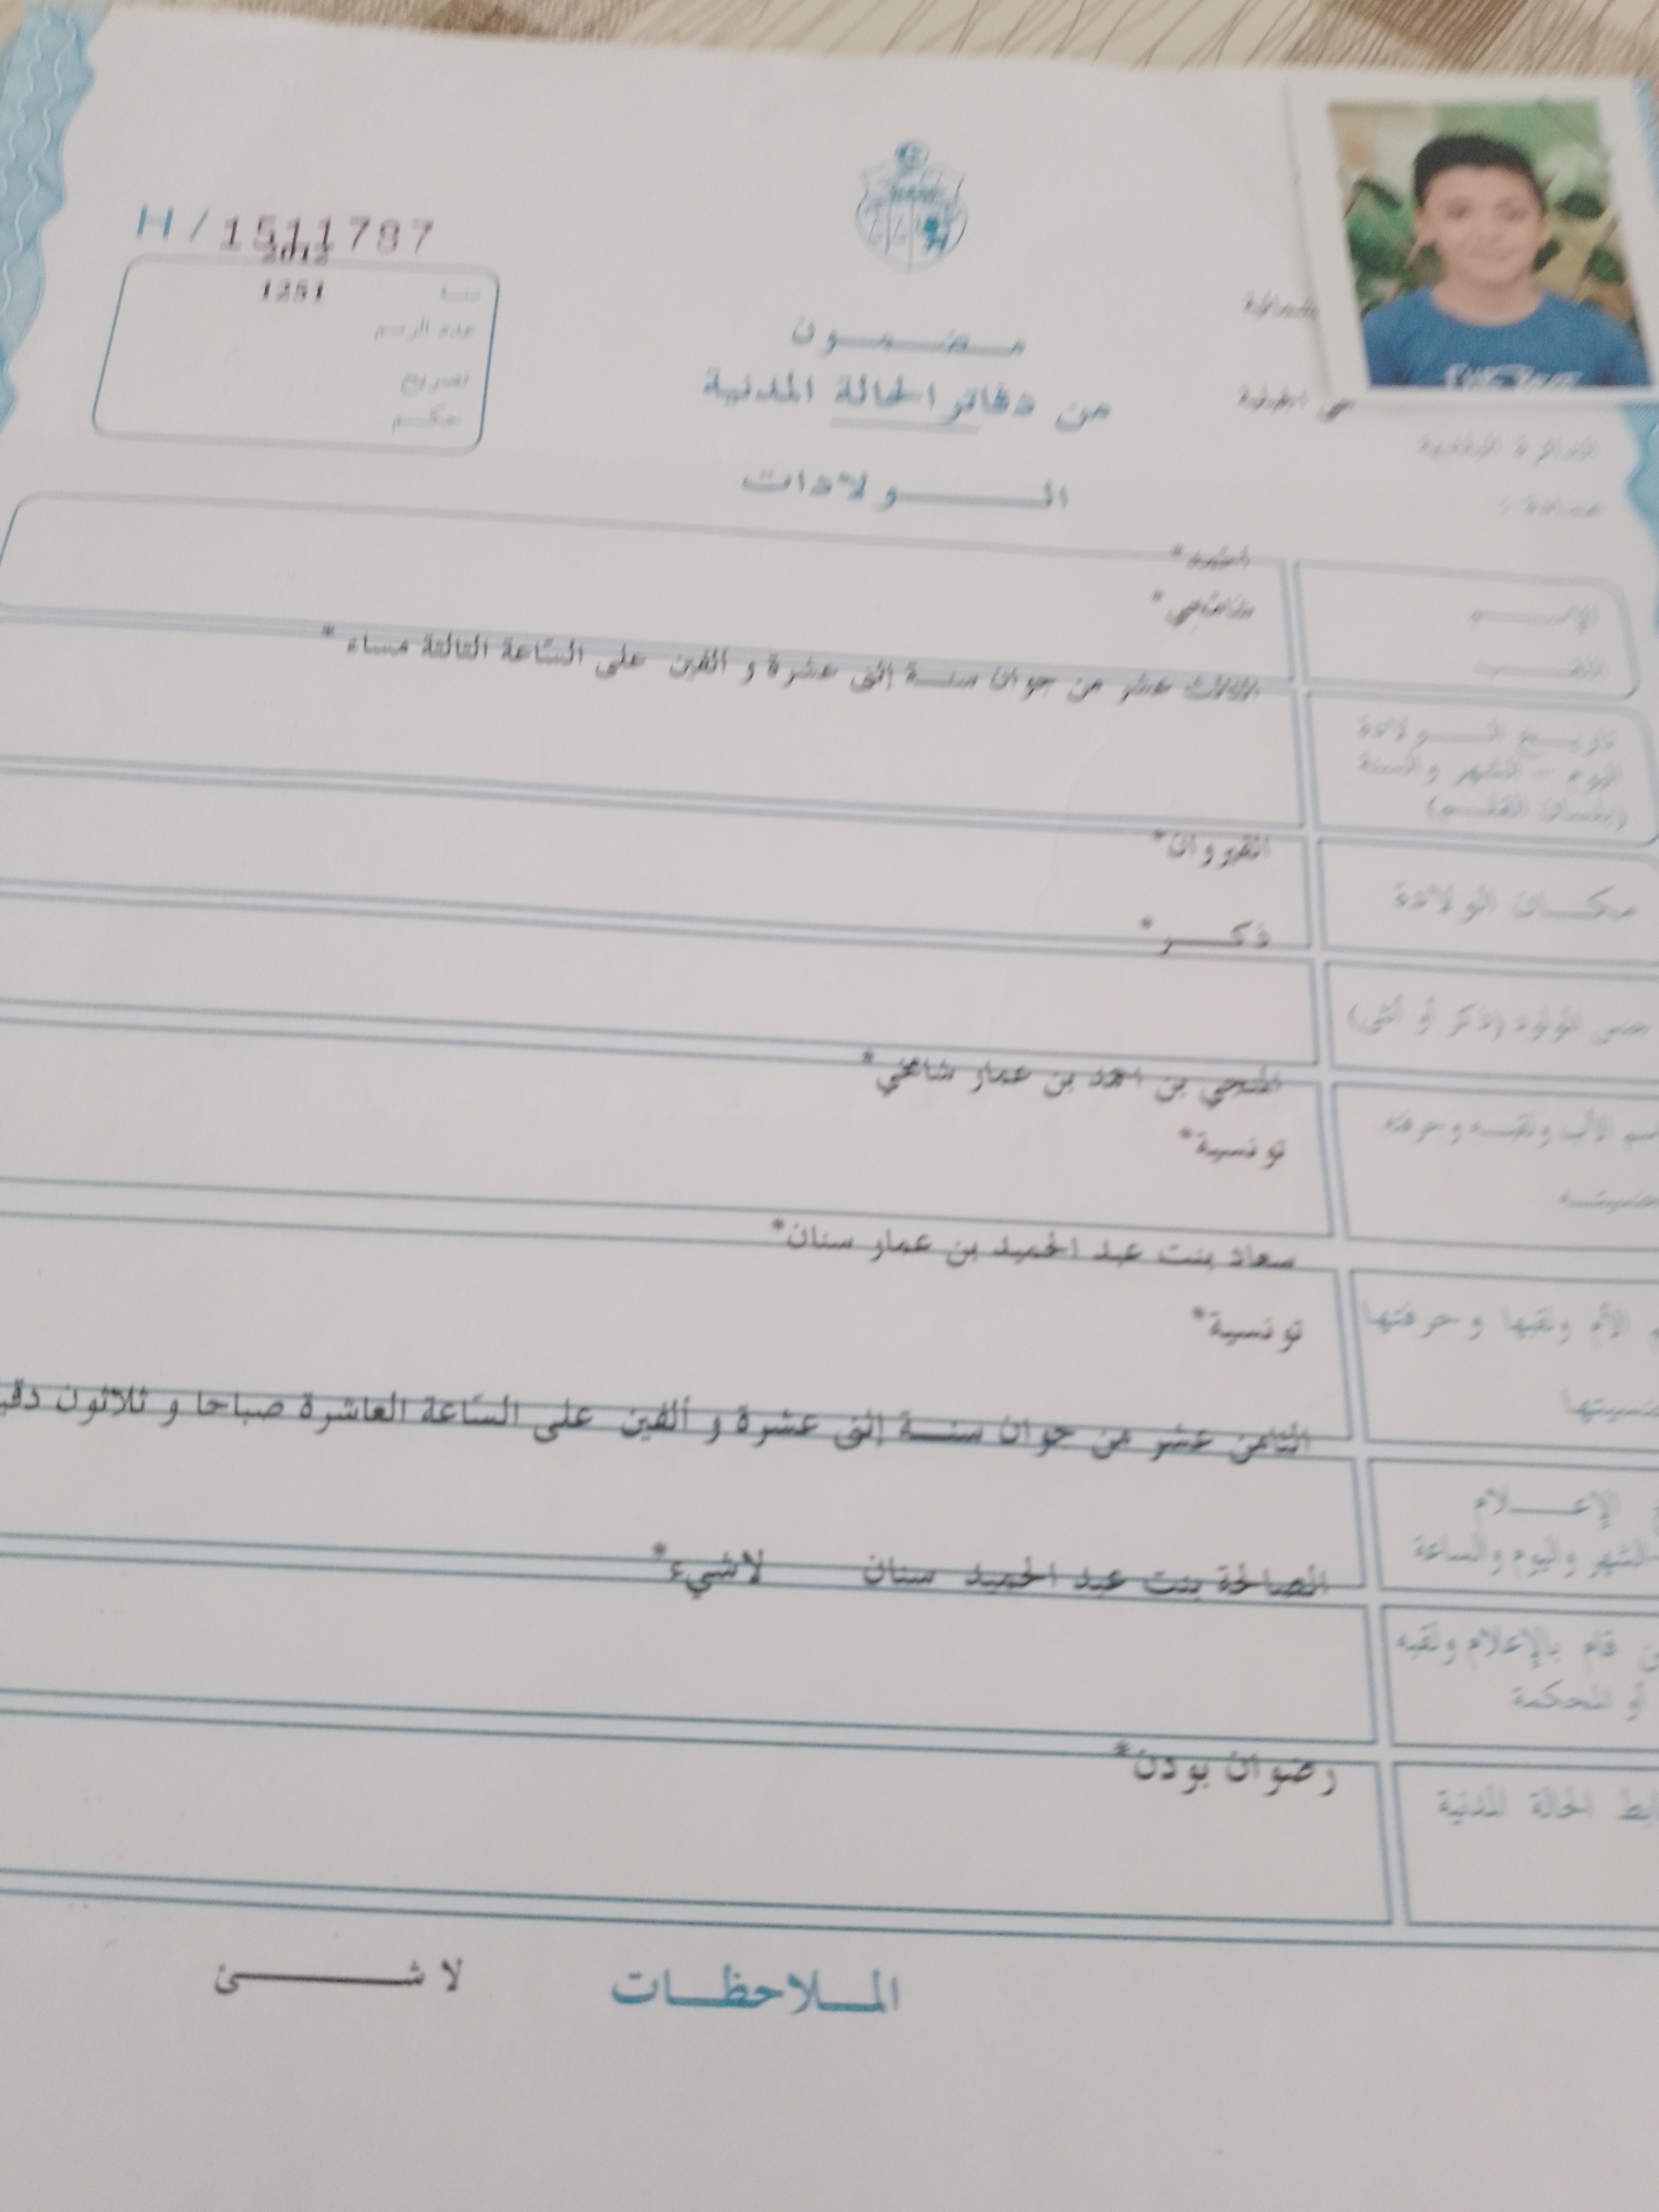 H/1511787
2012
سنة 1251
عدد الرسم
تصريح
حكم
مضمون
من دفاتر الحالة المدنية
الولادات
الإسم
اللقب
الثالث عشر من جوان سنة إثنى عشرة و ألفين على السّاعة الثالثة مساء *
تاريخ الولادة
اليوم - الشهر والسنة
(بلسان القلم)
القيروان*
مكان الولادة
ذكر *
جنس المولود (ذكر أو أنثى)
بن احمد بن عمار شامخي*
الأب ولقبه وحرفته
تونسية*
سعاد بنت عبد الحميد بن عمار سنان*
الأم ولقبها وحرفتها
تونسية*
الثامن عشر من جوان سنة إثنى عشرة و ألفين على السّاعة العاشرة صباحا و ثلاثون
الإعلام
الشهر واليوم والساعة
الصالحة بنت عبد الحميد سنان لاشيء*
قام بالإعلام ولقبه
أو المحكمة
رضوان بودن*
الحالة المدنية
الملاحظات لا شئ